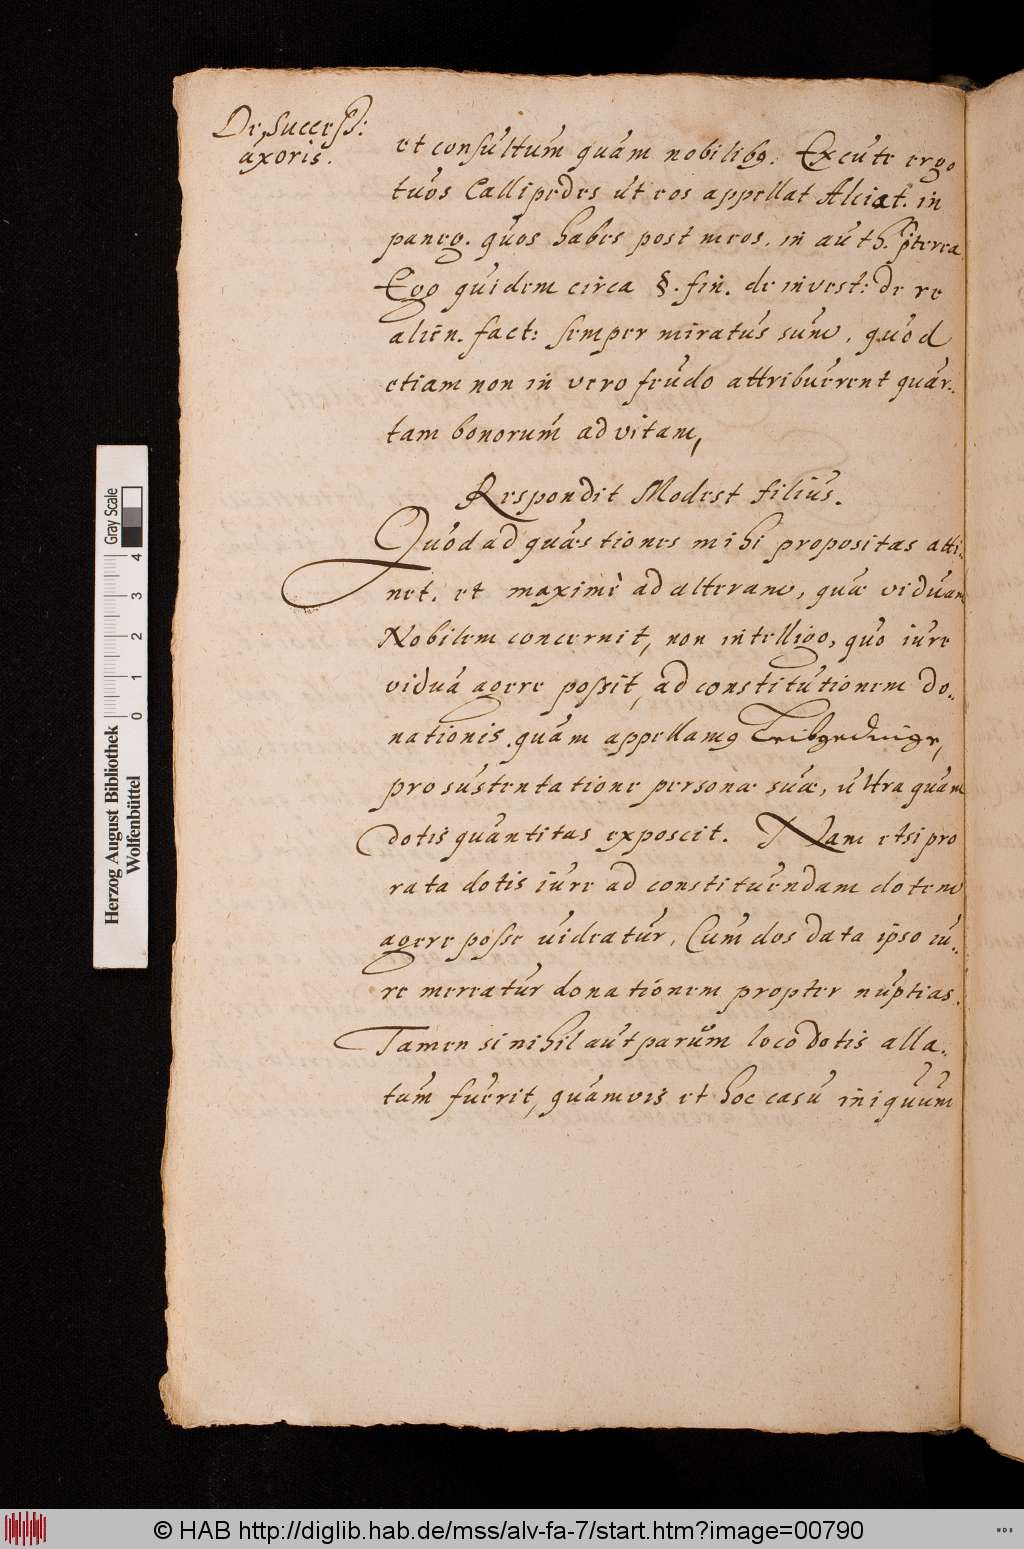 De Success:
uxoris.
et consultum quàm nobilibꝫ. Excute ergo
tuos Callipedes ut eos appellat Alciat. in
parerg. quos habes post meos. in auth. pterea
Ego quidem circa §. fin. de invest: de re
alien. fact: semper miratus sum, quod
etiam non in vero feudo attribuerent quar-
tam bonorum ad vitam,
Respondit Modest filius.
Quod ad quæstiones mihi propositas atti-
net. et maximè ad alteram, quæ viduam
Nobilem concernit, non intelligo, quo iure
vidua agere possit, ad constitutionem do-
nationis. quam appellamꝰ Leibgedinge,
pro sustentatione personæ suæ, ultra quam
dotis quantitas exposcit. Nam etsi pro
rata dotis iure ad constituendam dotem
agere posse videatur, Cum dos data ipso iu-
re mereatur donationem propter nuptias.
Tamen si nihil aut parum loco dotis alla-
tum fuerit, quamvis et hoc casu iniquum
Herzog August Bibliothek
Wolfenbüttel
0 1 2 3 4
Gray Scale
© HAB http://diglib.hab.de/mss/alv-fa-7/start.htm?image=00790